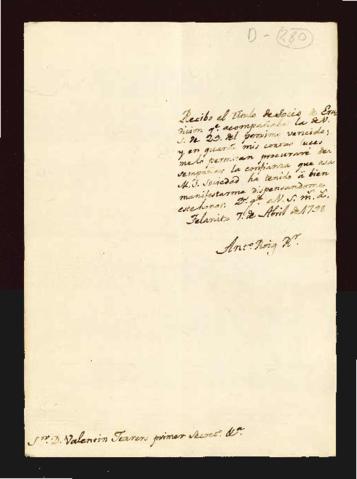 D - 280
Recibo el titulo de Socio de Ero-
nicion qe. acompañaba la de V.
S. de 29. del proximo vencido;
y en quanto mis cortas luces
me lo permitan procuraré de-
sempeñar la confianza que esa
M. I. Sociedad ha tenido á bien
manifestarme dispensandome
este honor. D. ge. a V. S. m. a.
Felanitx 7. de Abril de 1798
Anto. Roig Rr.
Sr. D. Valentin Terrers primer Secreto. &a.